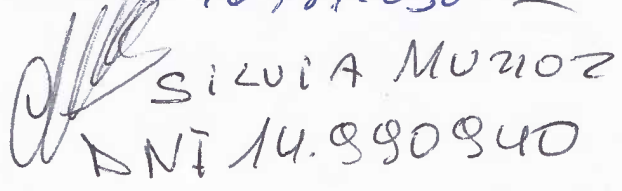 SILVIA MUÑOZ
DNI 14.990940